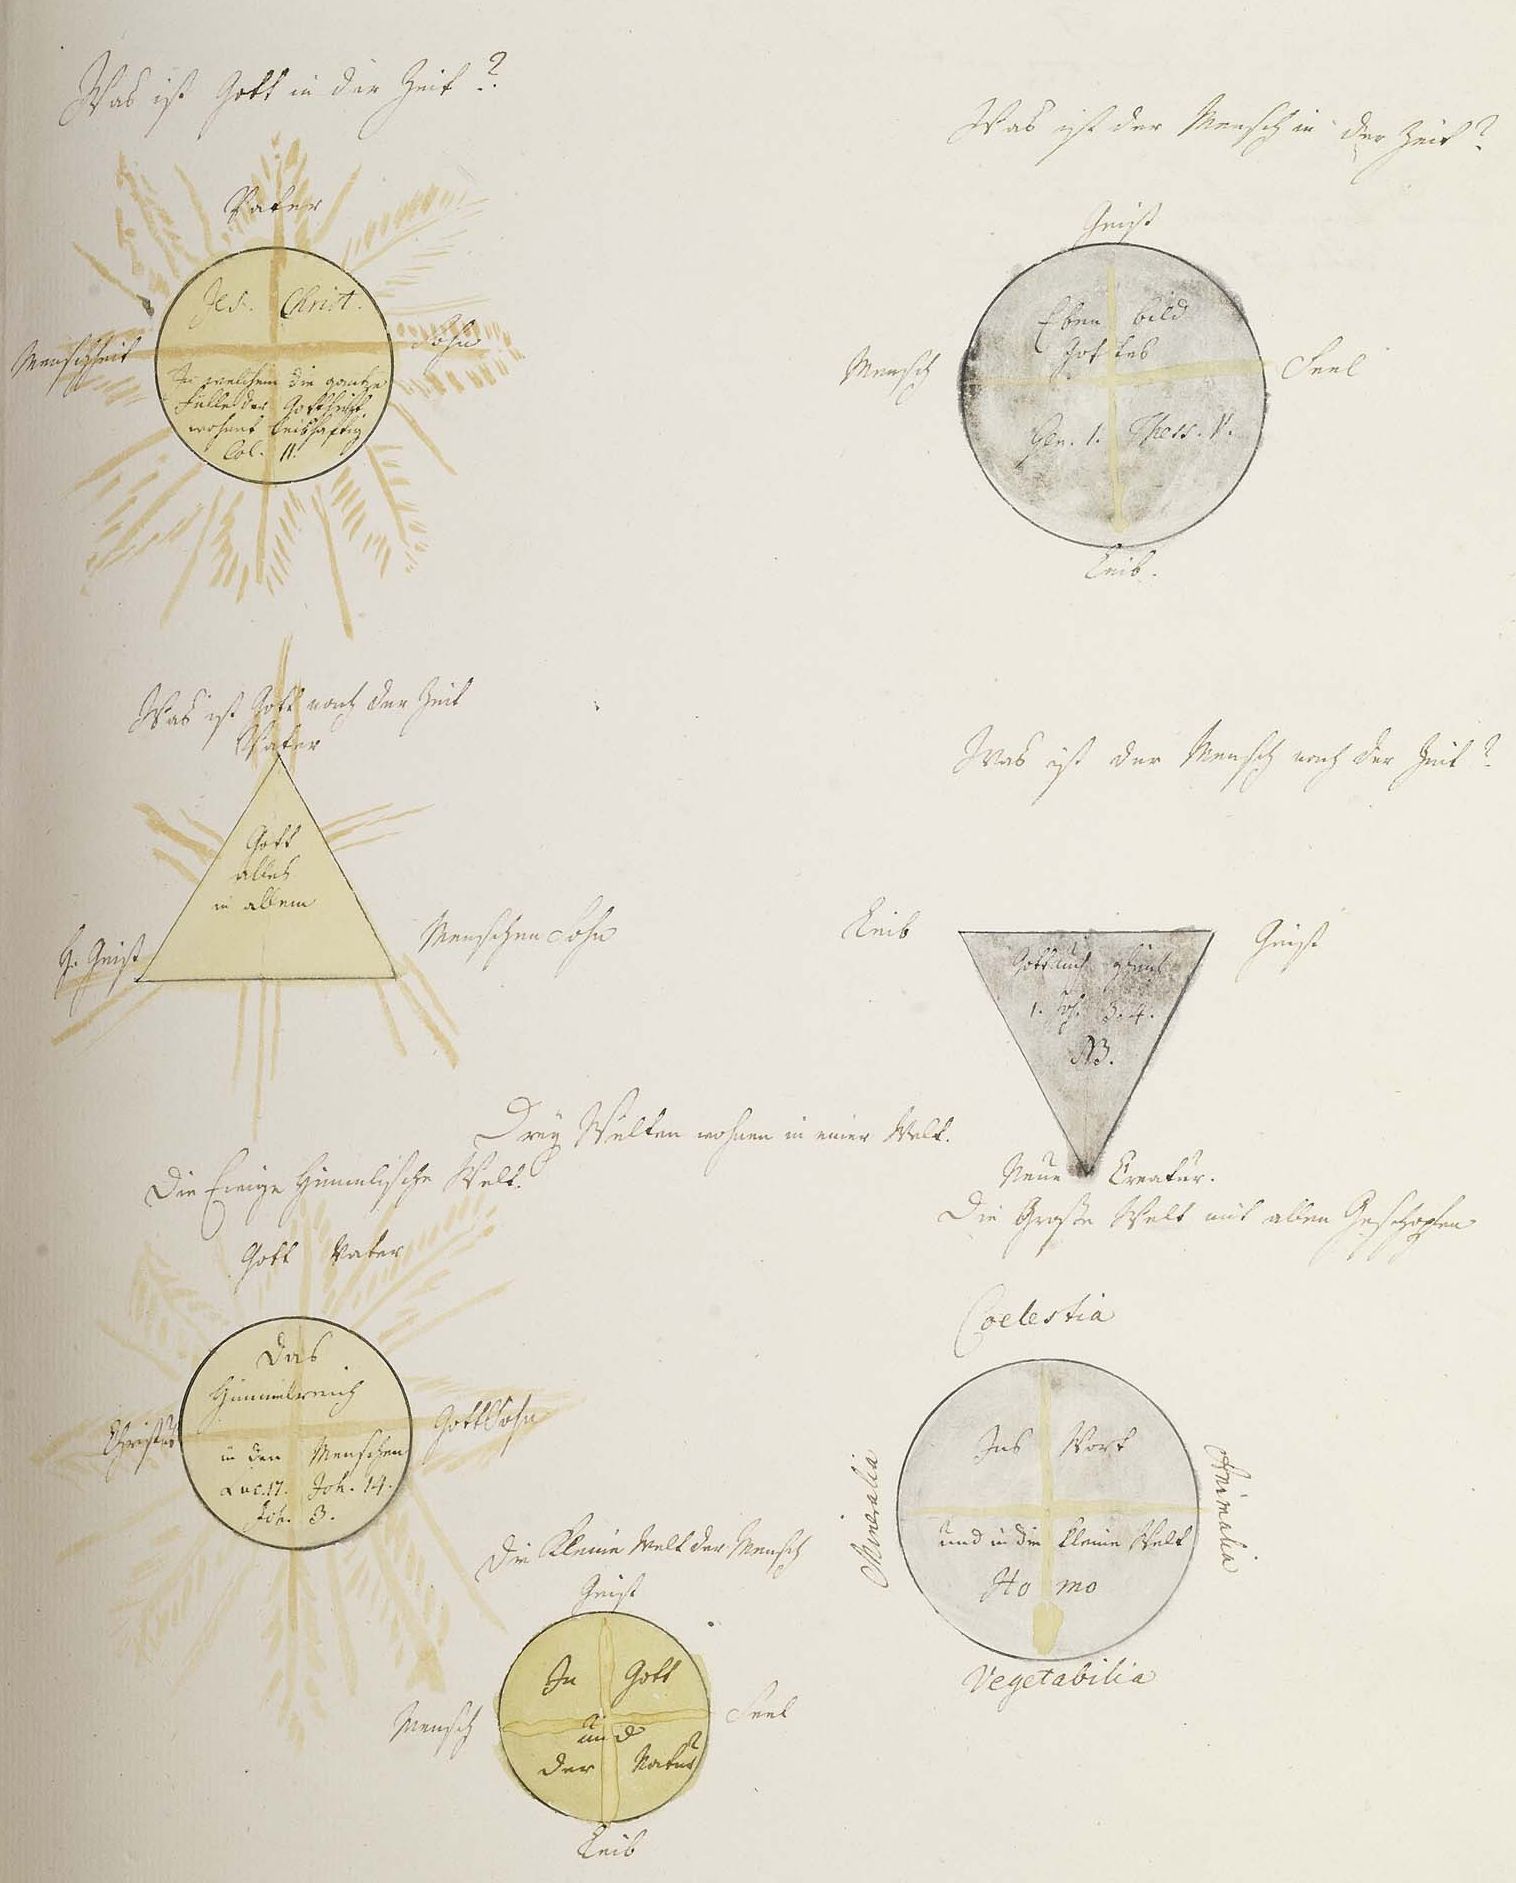 Was ist Gott in der Zeit?
Vater
Jes. Christ.
Menschheit
Sohn
In welchem die gantze
Fülle der Gottheit
wohnet leibhafftig
Col. II.
Was ist der Mensch in der Zeit?
Geist
Eben bild
Gottes
Mensch
Seel
Gen. 1. Thess. V.
Leib.
Was ist Gott nach der Zeit
Vater
Gott
alles
in allem
H. Geist
Menschen Sohn
Was ist der Mensch nach der Zeit?
Leib
Geist
Gott
1. Joh. 3. 4.
NB.
Neue Creatur.
Drey Welten wohnen in einer Welt.
Die Ewige Himmlische Welt.
Gott Vater
Das
Himmelreich
Christus
Gott Sohn
in den Menschen
Luc. 17. Joh. 14.
Joh. 3.
Die Große Welt mit allen Geschöpfen
Coelestia
Mineralia
Animalia
Wort
und in die kleine Welt
Homo
Vegetabilia
Die kleine Welt der Mensch
Geist
In Gott
und
der Natur
Mensch
Seel
Leib